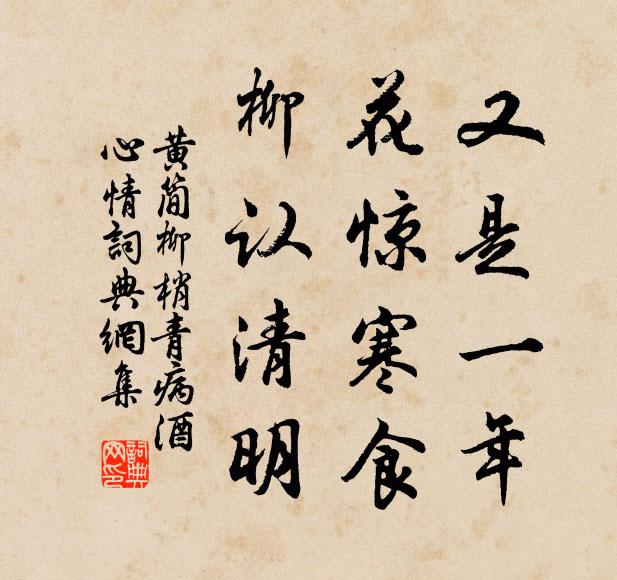 又是一年
花惊寒食
柳认清明
黄简柳梢青病酒
心情詞典網集
詞典
网印